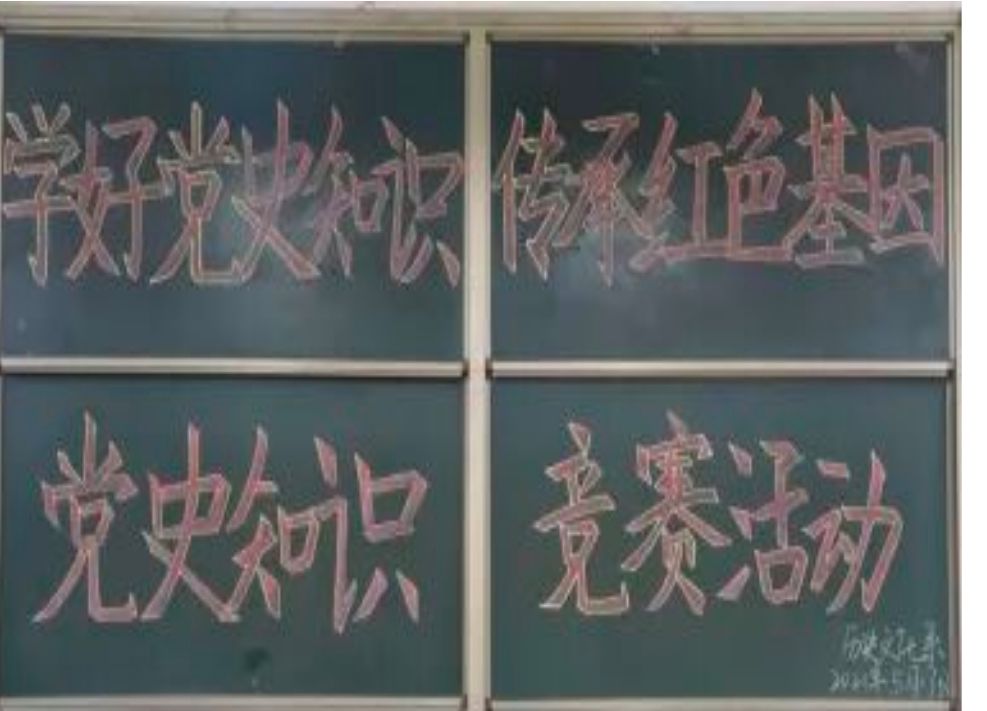 学好党史知识
传承红色基因
党史知识
竞赛活动
历史文化系
2021年5月